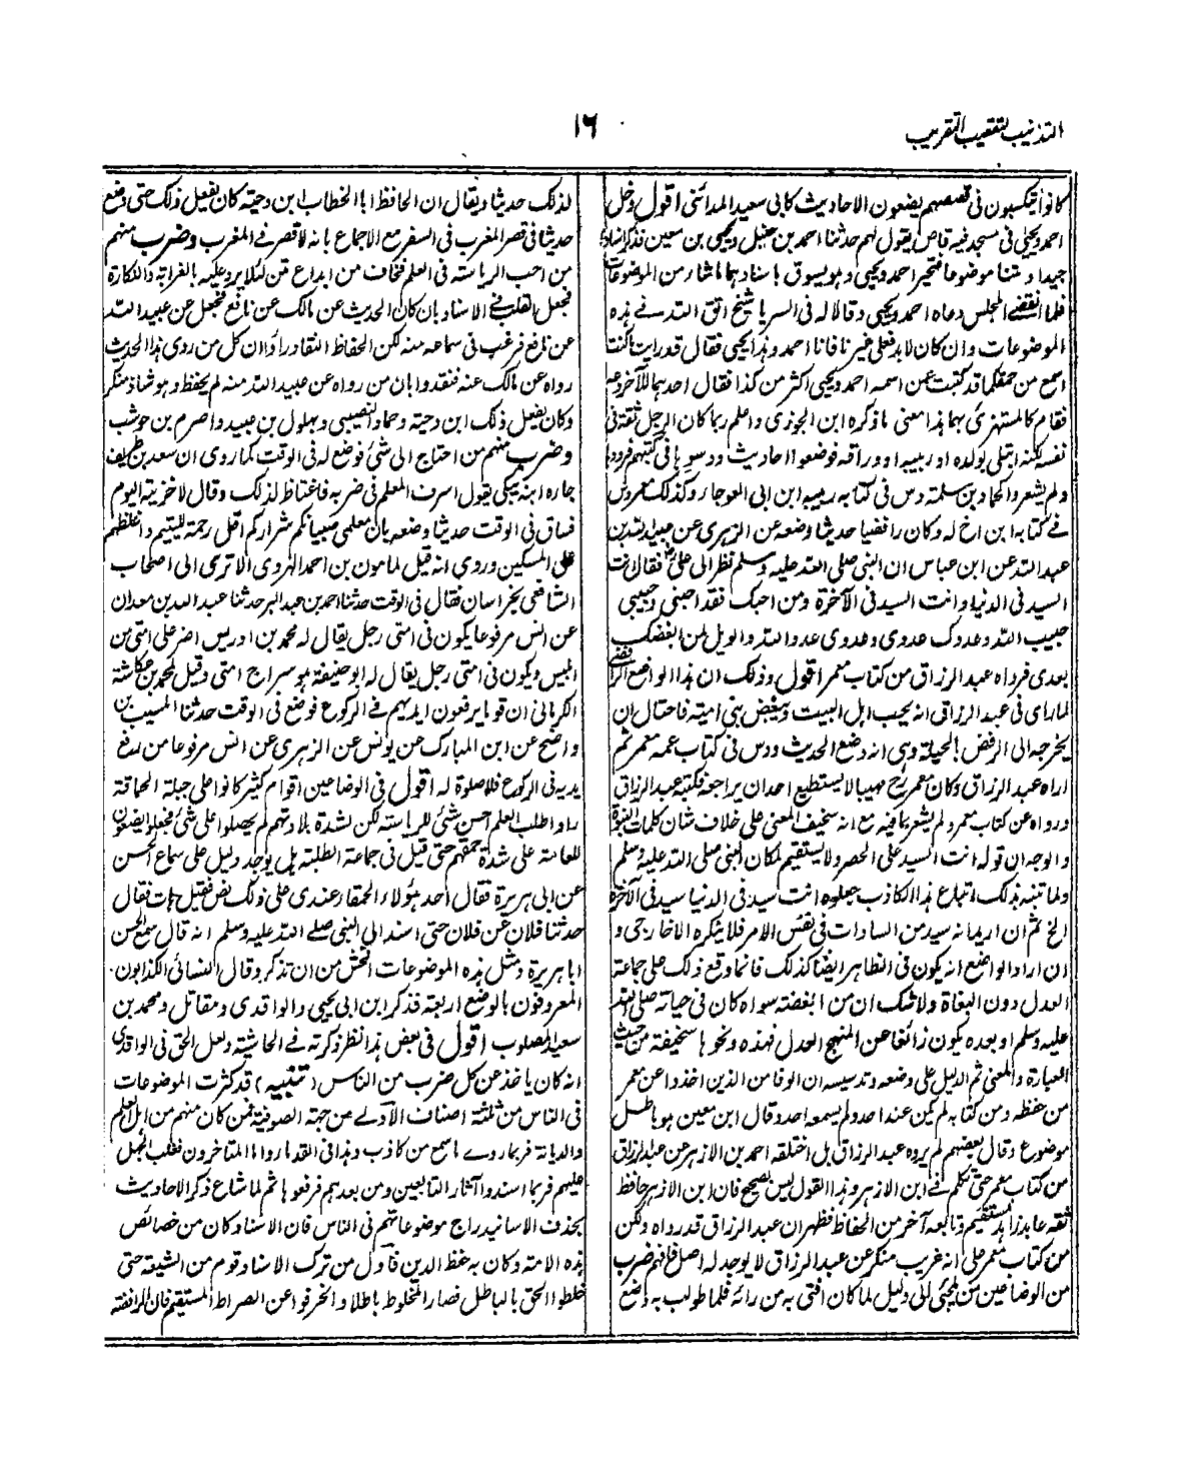 التذنيب لتعقيب التقريب
١٦
كانوا يتكسبون فى قصصهم يضعون الاحاديث كابى سعيد المدائنى اقول دخل
احمد ويحيى فى مسجد فيه قاص يقول لهم حدثنا احمد بن حنبل ويحيى بن معين فذكر اسنادا
جيدا ومتنا موضوعا فتحير احمد ويحيى وهو يسوق باسنادهما ماشاء من الموضوعات
فلما انقضى المجلس دعاه احمد ويحيى وقالا له فى السر يا شيخ اتق الله فى هذه
الموضوعات وان كان لابد فعلى غيرنا فانا احمد وهذا يحيى فقال قد رايت ما كنت
اسمع من حمقكما قد كتبت عمن اسمه احمد ويحيى اكثر من كذا فقال احدهما للآخر دعه
فقام كالمستهزئ بهما هذا معنى ما ذكره ابن الجوزى واعلم ربما كان الرجل ثقة فى
نفسه لكنه ابتلى بولده او ربيبه او وراقه فوضعوا احاديث ودسوها فى كتبهم فرووها
ولم يشعروا كحماد بن سلمة دس فى كتابه ربيبه ابن ابى العوجاء وكذلك معمر دس
فى كتابه ابن اخ له وكان رافضيا حديثا وضعه عن الزهرى عن عبيد الله بن
عبد الله عن ابن عباس ان النبى صلى الله عليه وسلم نظر الى على فقال انت
السيد فى الدنيا وانت السيد فى الآخرة ومن احبك فقد احبنى وحبيبى
حبيب الله وعدوك عدوى وعدوى عدو الله والويل لمن ابغضك
بعدى فرواه عبد الرزاق من كتاب معمر اقول وذلك ان هذا الواضع الرافضى
لما راى فى عبد الرزاق انه يحب اهل البيت ويبغض بنى امية فاحتال ان
يخرجه الى الرفض بالحيلة وهى انه وضع الحديث ودس فى كتاب عمه معمر ثم
اراه عبد الرزاق وكان معمر رح مهيبا لا يستطيع احد ان يراجعه فكتبه عبد الرزاق
ورواه عن كتاب معمر ولم يشعر بما فيه مع انه سخيف المعنى على خلاف شان كلمات النبوة
والوجه ان قوله انت السيد على الحصر ولا يستقيم لمكان النبى صلى الله عليه وسلم
ولما تنبه بذلك اتباع هذا الكاذب جعلوه انت سيد فى الدنيا سيد فى الآخرة
الخ ثم ان اريد انه سيد من السادات فى نفس الامر فلا ينكره الا خارجى و
ان اراد الواضع انه يكون فى الظاهر ايضا كذلك فانما وقع ذلك على جماعة
العدل دون البغاة ولا شك ان من ابغضه سواه كان فى حياته صلى الله
عليه وسلم او بعده يكون زائغا عن المنهج العدل فهذه ونحوها سخيفة من حيث
العبارة والمعنى ثم الدليل على وضعه وتدسيسه ان الوفا من الذين اخذوا عن معمر
من حفظه ومن كتابه لم يكن عند احد ولم يسمعه احد وقال ابن معين هو باطل
موضوع وقال بعضهم لم يروه عبد الرزاق بل اختلقه احمد بن الازهر عن عبد الرزاق
من كتاب معمر حتى تكلم فى ابن الازهر وهذا القول ليس بصحيح فان ابن الازهر حافظ
ثقه عابد زاهد مستقيم وتابعه آخر من الحفاظ فظهر ان عبد الرزاق قد رواه ولكن
من كتاب معمر على انه غريب منكر عن عبد الرزاق لا يوجد له اصل فافهم ضرب
من الوضاعين من يلجئ الى دليل لما كان افتى به من رائه فلما طولب به وضع
لذلك حديثا ويقال ان الحافظ ابا الخطاب ابن دحية كان يفعل ذلك حتى وضع
حديثا فى قصر المغرب فى السفر مع الاجماع بانه لا قصر فى المغرب وضرب منهم
من احب الرياسته فى العلم فخاف من ابداع متن لئلا يرد عليه بالغرابة والنكارة
فجعل القلب فى الاسناد بان كان الحديث عن مالك عن نافع فجعل عن عبيد الله
عن نافع فرغب فى سماعه منه لكن الحفاظ النقاد راوا ان كل من روى هذا الحديث
رواه عن مالك عنه فنقدوا بان من رواه عن عبيد الله منه لم يحفظ وهو شاذ منكر
وكان يفعل ذلك ابن دحية وحماد النصيبى وبهلول بن عبيد واصرم بن حوشب
وضرب منهم من احتاج الى شئ فوضع له فى الوقت كما روى ان سعد بن طريف
جاره ابنه يبكى يقول اسرف المعلم فى ضربه فاغتاظ لذلك وقال لاخزينه اليوم
فساق فى الوقت حديثا وضعه بان معلمى صبيانكم شراركم اقل رحمة لليتيم واغلظهم
على المسكين وروى انه قيل لمامون بن احمد الهروى الا ترى الى اصحاب
الشافعى بخراسان فقال فى الوقت حدثنا احمد بن عبد البر حدثنا عبد الله بن معدان
عن انس مرفوعا يكون فى امتى رجل يقال له محمد بن ادريس اضر على امتى من
ابليس ويكون فى امتى رجل يقال له ابو حنيفة هو سراج امتى وقيل لمحمد بن عكاشة
الكرمانى ان قوما يرفعون ايديهم فى الركوع فوضع فى الوقت حدثنا المسيب بن
واضح عن ابن المبارك عن يونس عن الزهرى عن انس مرفوعا من رفع
يديه فى الركوع فلا صلوة له اقول فى الوضاعين اقوام كثير كانوا على جبلة الحماقة
راوا طلب العلم احسن شئ للرياسته لكن لشدة بلادتهم لم يحصلوا على شئ فجعلوا يضعون
للعامته على شدة حمقهم حتى قيل فى جماعة الطلبة هل يوجد دليل على سماع الحسن
عن ابى هريرة فقال احد هؤلاء الحمقاء عندى على ذلك نص فقيل هات فقال
حدثنا فلان عن فلان حتى اسند الى النبى صلى الله عليه وسلم انه قال سمع الحسن
ابا هريرة ومثل هذه الموضوعات افحش من ان تذكر وقال النسائى الكذابون
المعروفون بالوضع اربعة فذكر ابن ابى يحيى والواقدى ومقاتل ومحمد بن
سعيد المصلوب اقول فى بعض هذا نظر ذكرته فى الحاشية ولعل الحق فى الواقدى
انه كان ياخذ عن كل ضرب من الناس (تنبيه) قد كثرت الموضوعات
فى الناس من ثلثة اصناف الاول من جهة الصوفية فمن كان منهم من اهل العلم
والديانة فربما روى ما سمع من كاذب وهذا فى القدماء واما المتاخرون فغلب الجهل
عليهم فربما اسندوا آثار التابعين ومن بعدهم فرفعوها ثم لما شاع ذكر الاحاديث
بحذف الاسانيد راج موضوعاتهم فى الناس فان الاسناد كان من خصائص
هذه الامة وكان به حفظ الدين فاول من ترك الاسناد قوم من الشيعة حتى
خلطوا الحق بالباطل فصار المخلوط باطلا وانحرفوا عن الصراط المستقيم فان الرافضة